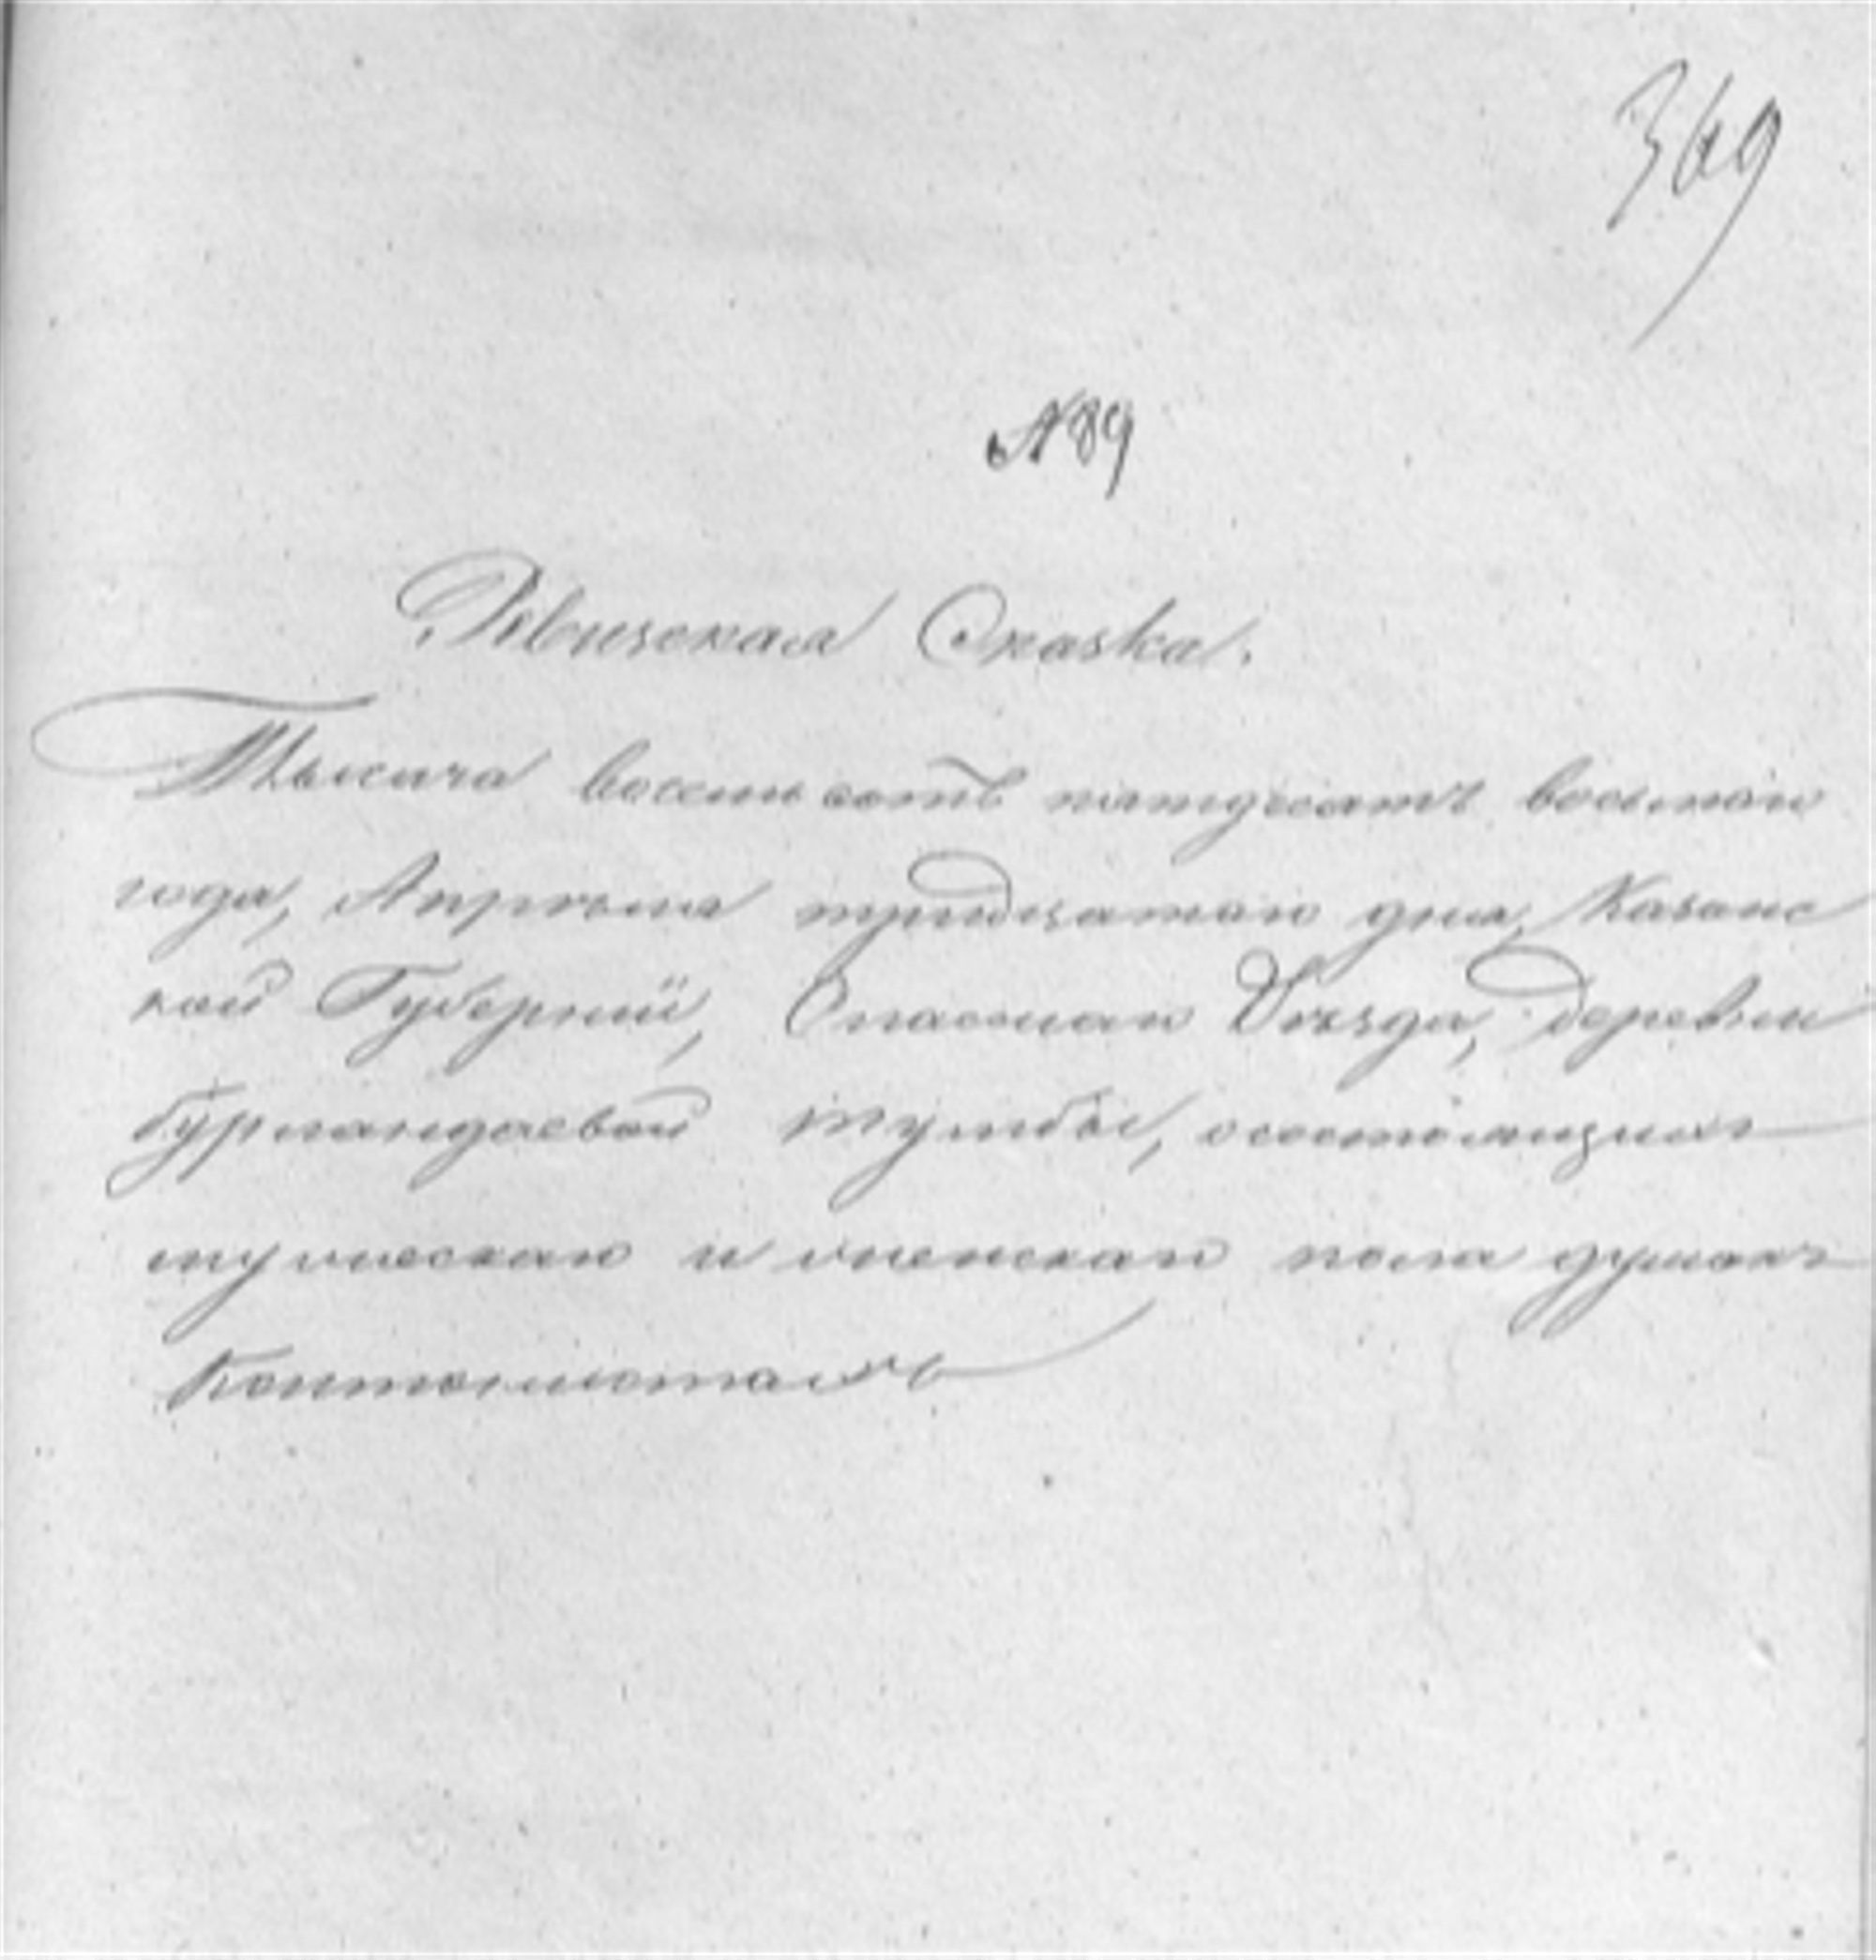 369
№ 89
Ревизская Сказка.
Тысяча восемьсотъ пятдесятъ восьмаго
года, Апрѣля тридцатаго дня, Казанс
кой Губерніи, Спаскаго Уѣзда, деревни
Тумбы, о состоящихъ
мужескаго и женскаго пола душахъ